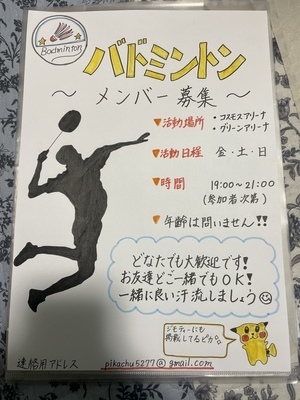 Badminton
バドミントン
～メンバー募集～
▼活動場所 ・コスモスアリーナ
・グリーンアリーナ
▼活動日程 金・土・日
▼時間 19:00～21:00
(参加者次第)
▼年齢は問いません!!
どなたでも大歓迎です!
お友達とご一緒でもOK!
一緒に良い汗流しましょう
ジモティーにも
掲載してるピカ。
連絡用アドレス pikachu5277@gmail.com